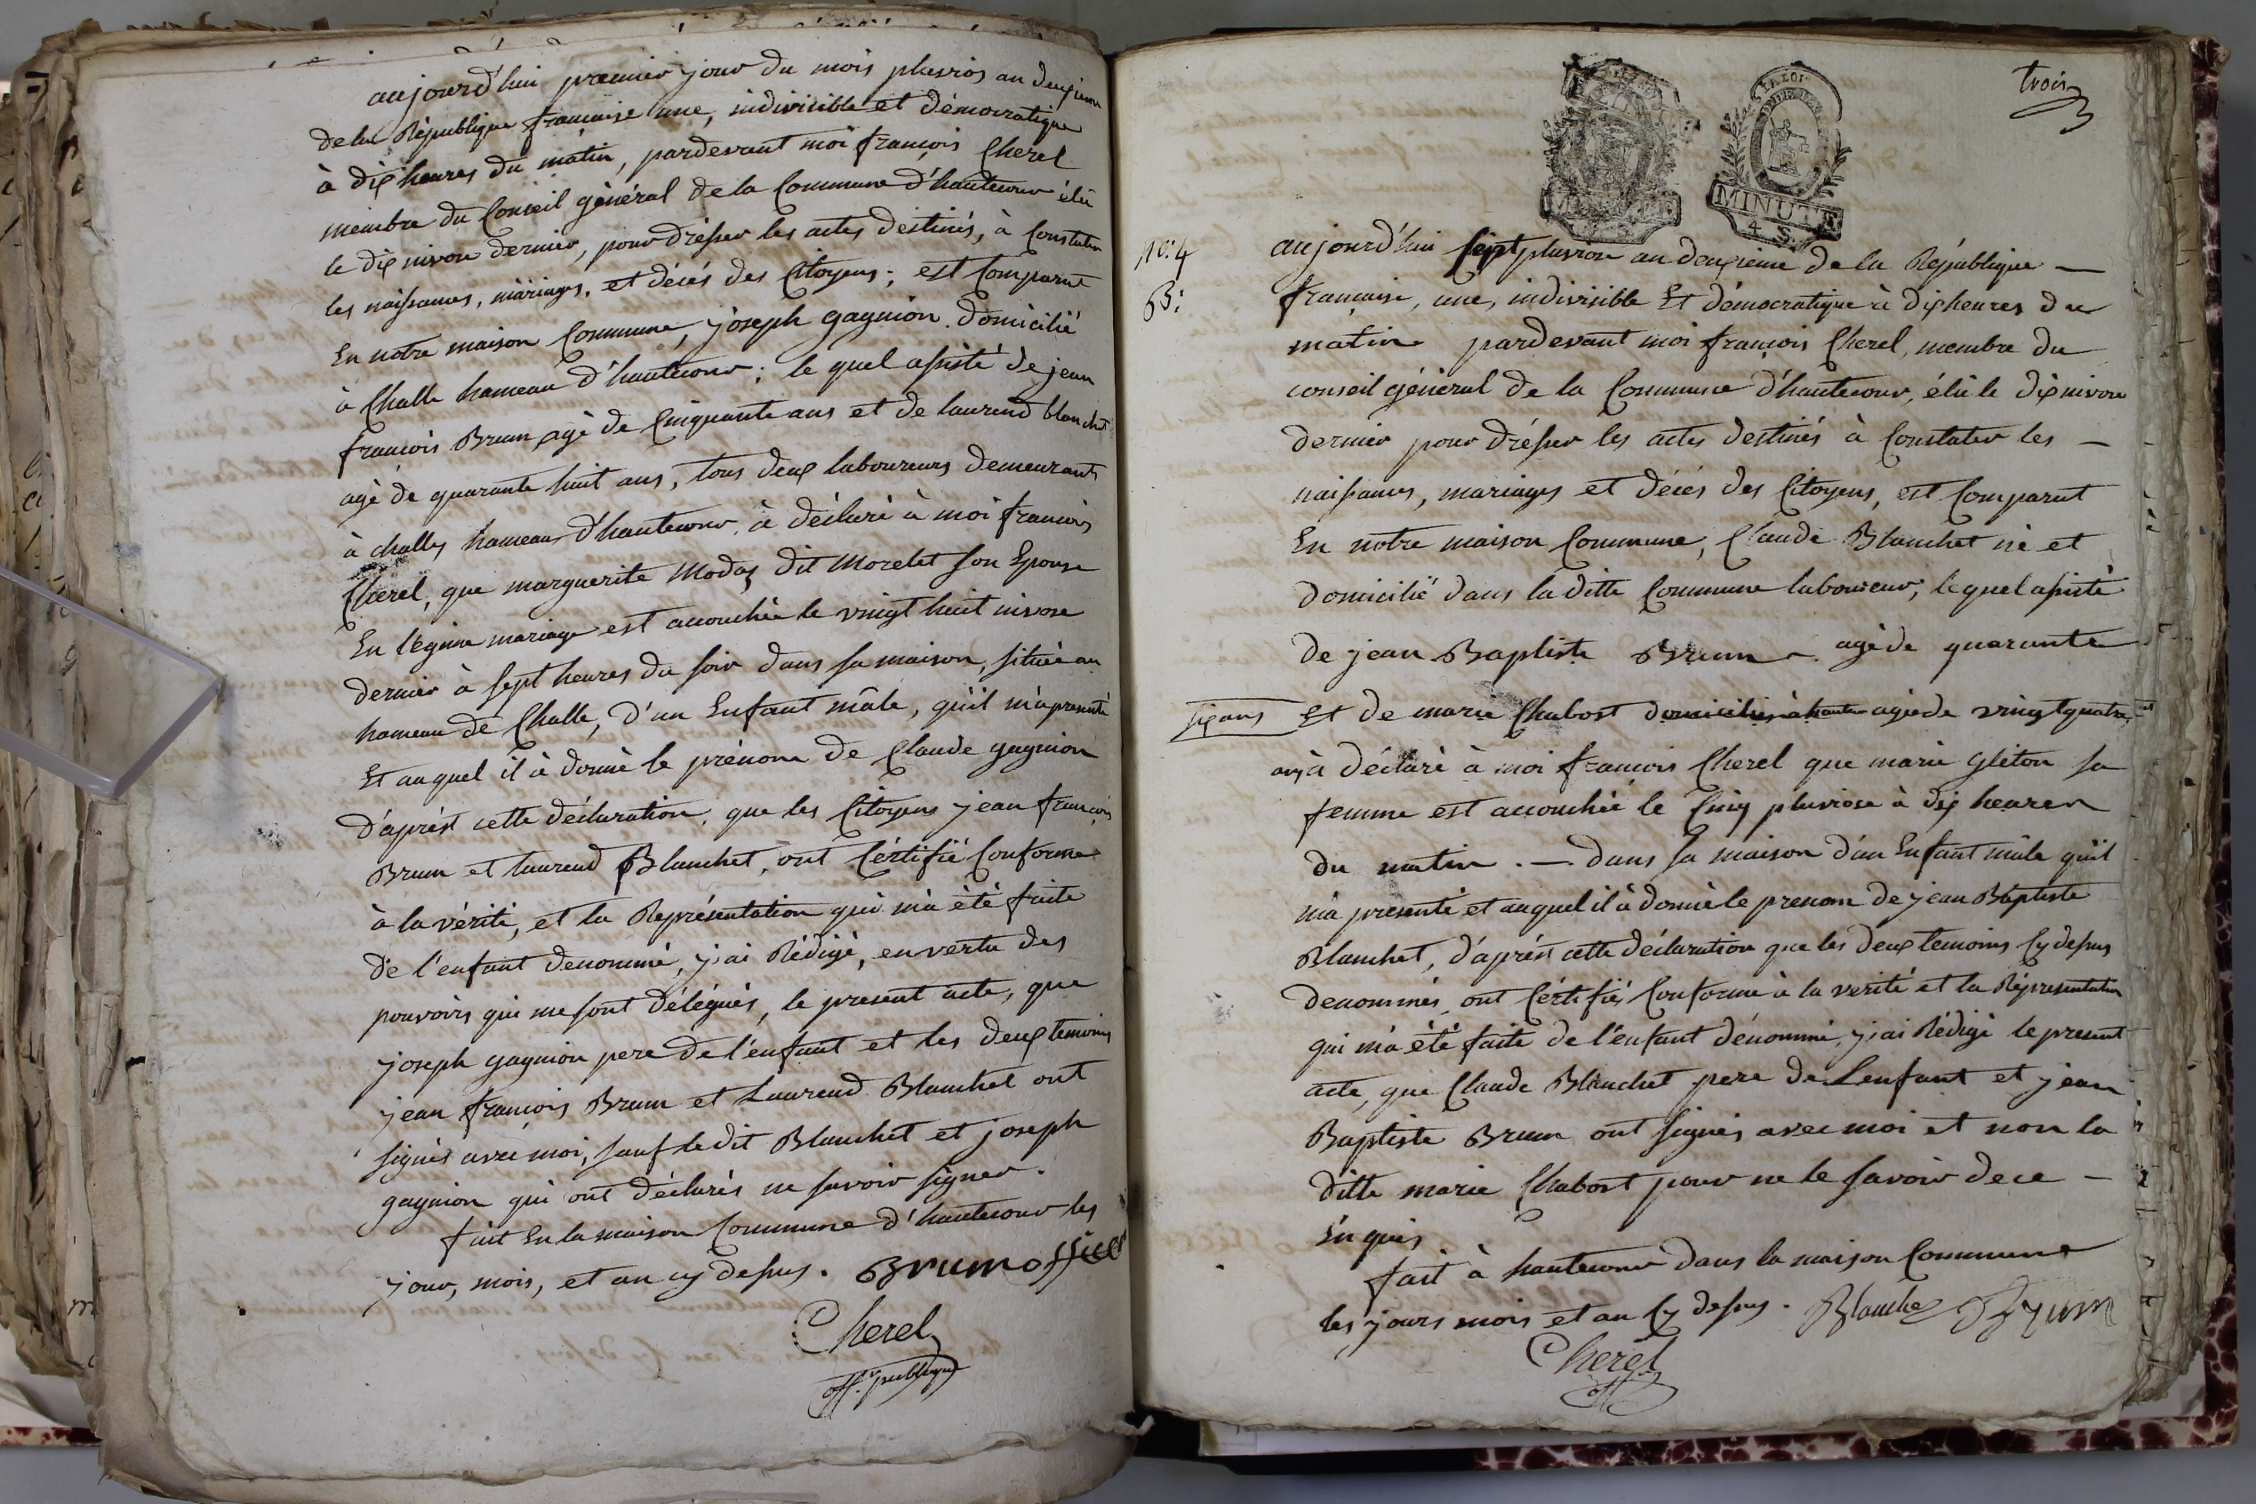 aujourd'hui premier jour du mois pluvios an deuxieme
de la République francaise une, indivisible et démocratique
à dix heures du matin, pardevant moi françois Cherel
membre du Conseil général de la Commune d'hautecour élu
le dix nivose dernier, pour drésser les actes destinés, à Constater
les naissances, mariages, et décés des Citoyens; est Comparut
En notre maison Commune, joseph gagnion domicilié
à Challe hameau d'hautecour; le quel assisté de jean
françois Brum agé de Cinquante ans et de laurend blanchet
agé de quarante huit ans, tous deux laboureurs demeurants
à challes hameau d'hautecour à déclaré à moi francois
Cherel, que marguerite Modas dit Morelet son Epouse
En légime mariage est accouchée le vingt huit nivose
dernier à sept heures du soir dans sa maison, située au
hameau de Challe, d'un Enfant mâle, qu'il m'a presenté
Et auquel il à donné le prénom de Claude gagnion
d'aprést cette déclaration, que les Citoyens jean françois
Brum et laurend Blanchet, ont Cértifié Conforme
à la vérité, et la Représentation qui m'à été faite
de l'enfant denommé, j'ai Rédigé, en vertu des
pouvoirs qui me sont délégués, le present acte, que
joseph gagnion pere de l'enfant et les deux temoins
jean françois Brum et Laurend Blanchet ont
signés avec moi, sauf ledit Blanchet et joseph
gagnion qui ont déclarés ne savoir signer.
fait En la maison Commune d'hautecour les
jour, mois, et an cy dessus. Brum officier
Cherel
off. publique
trois
MINUTE
4 S
No: 4
B:
aujourd'hui sept pluviose an deuxieme de la République —
française, une, indivisible Et démocratique à dix heures du
matin pardevant moi françois Cherel, membre du
conseil général de la Commune d'hautecour, élu le dix nivose
dernier pour drésser les actes destinés à Constater les —
naissances, mariages et décés des Citoyens, est Comparut
En notre maison Commune, Claude Blanchet né et
domicilié dans la ditte Commune laboureur, lequel assisté
de jean Baptiste Brum agé de quarante
six ans Et de marie Chabost agée de vingt quatre
ans à déclaré à moi francois Cherel que marie gléton sa
femme est accouchée le Cinq pluviose à dix heures
du matin . — dans sa maison d'un Enfant mâle qu'il
m'à presenté et auquel il à donné le prenom de jean Baptiste
Blanchet, d'aprést cette déclaration que les deux temoins Cy dessus
denommés ont Cértifiés Conforme à la verité et la Réprésentation
qui m'à été faite de l'enfant dénommé, j'ai Rédigé le present
acte, que Claude Blanchet pere de Lenfant et jean
Baptiste Brum ont signés avec moi et non la
ditte marie Chabost pour ne le savoir de ce —
Enquis
fait à hautecour dans la maison Commune
les jours mois et an Cy dessus. Blanchet Brum
Cherel
off